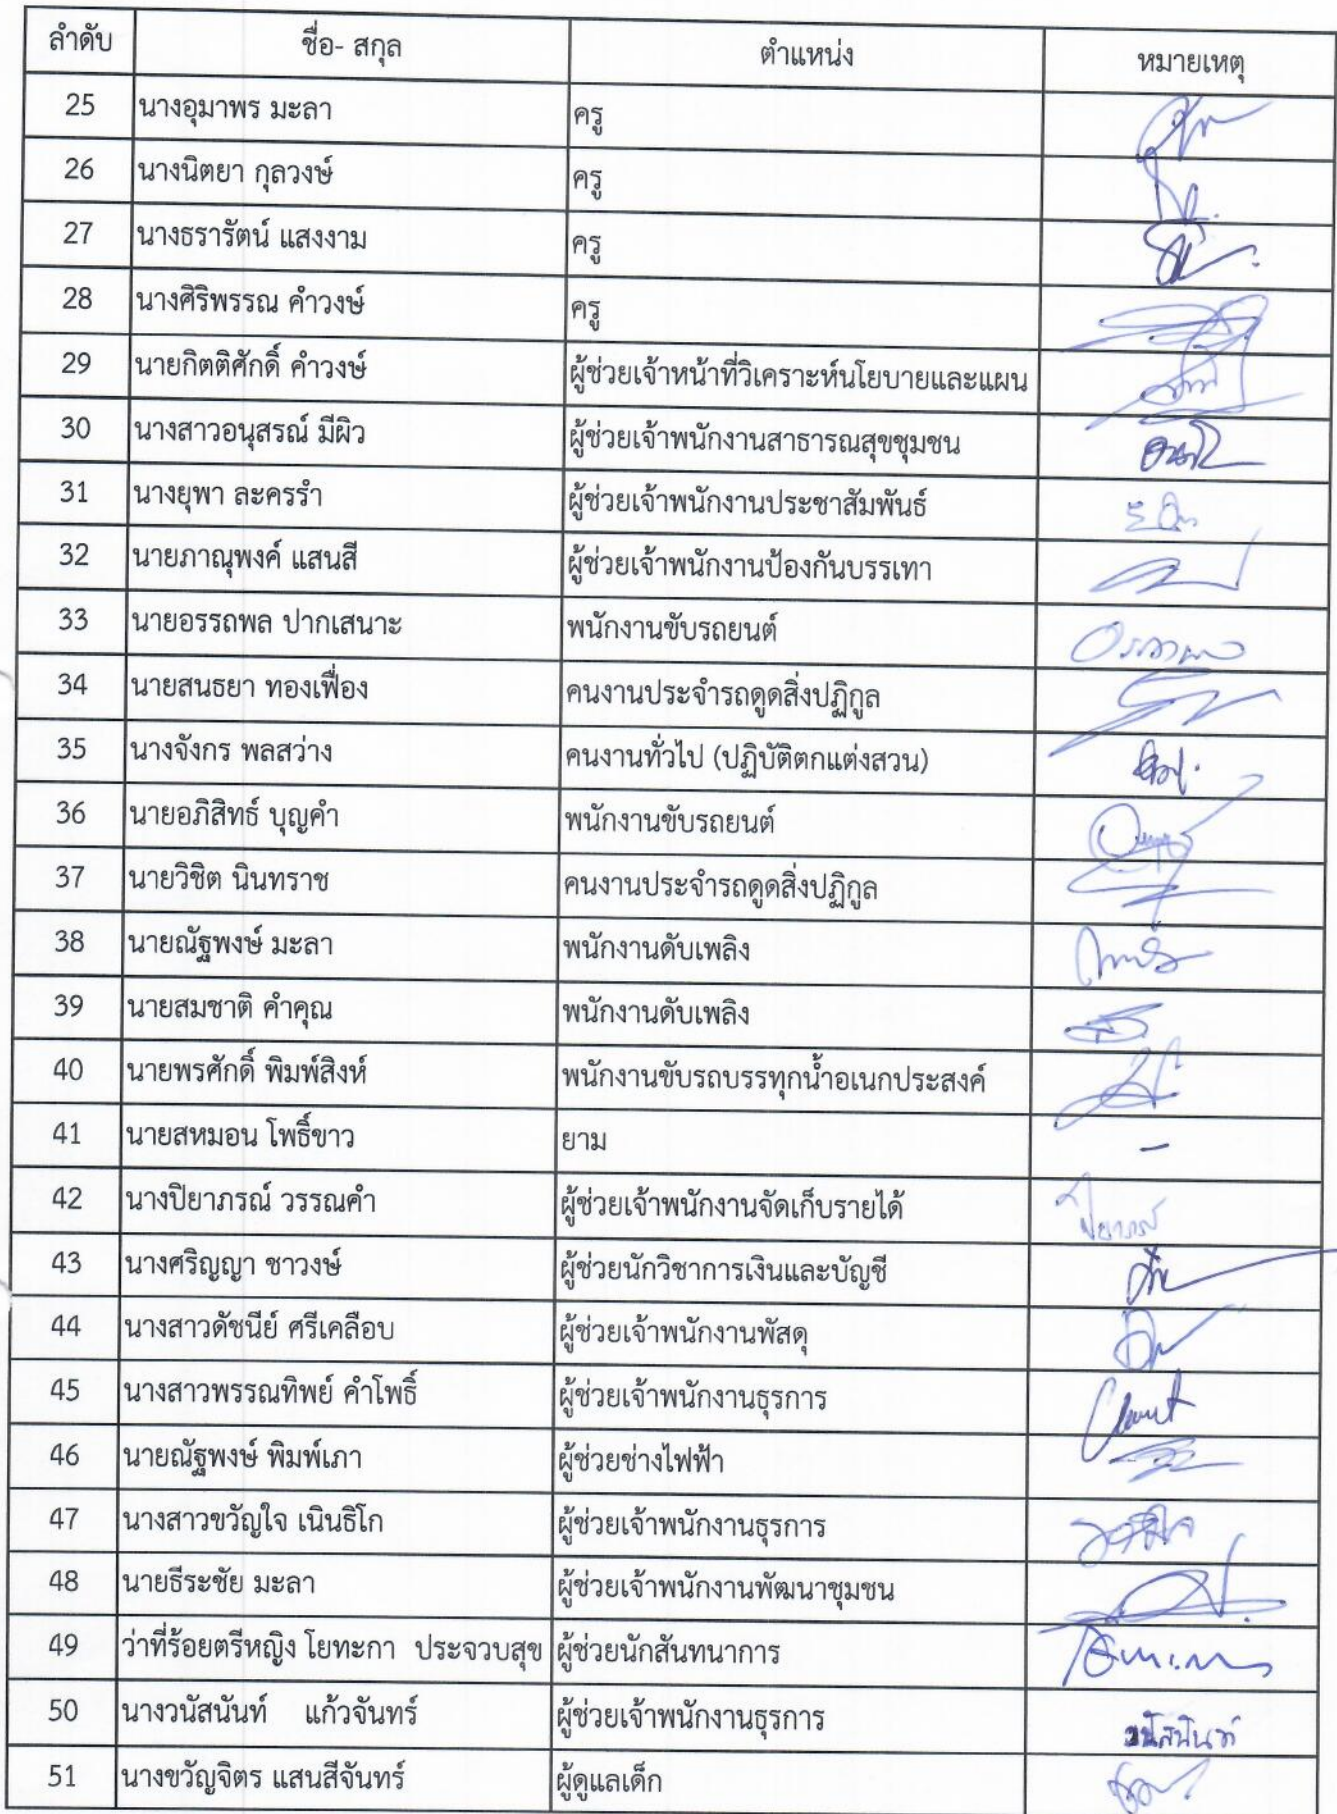 ลำดับ ชื่อ- สกุล ตำแหน่ง หมายเหตุ
25 นางอุมาพร มะลา ครู
26 นางนิตยา กุลวงษ์ ครู
27 นางธรารัตน์ แสงงาม ครู
28 นางศิริพรรณ คำวงษ์ ครู
29 นายกิตติศักดิ์ คำวงษ์ ผู้ช่วยเจ้าหน้าที่วิเคราะห์นโยบายและแผน
30 นางสาวอนุสรณ์ มีผิว ผู้ช่วยเจ้าพนักงานสาธารณสุขชุมชน
31 นางยุพา ละครรำ ผู้ช่วยเจ้าพนักงานประชาสัมพันธ์
32 นายภาณุพงค์ แสนสี ผู้ช่วยเจ้าพนักงานป้องกันบรรเทา
33 นายอรรถพล ปากเสนาะ พนักงานขับรถยนต์
34 นายสนธยา ทองเฟื่อง คนงานประจำรถดูดสิ่งปฏิกูล
35 นางจังกร พลสว่าง คนงานทั่วไป (ปฏิบัติตกแต่งสวน)
36 นายอภิสิทธ์ บุญคำ พนักงานขับรถยนต์
37 นายวิชิต นินทราช คนงานประจำรถดูดสิ่งปฏิกูล
38 นายณัฐพงษ์ มะลา พนักงานดับเพลิง
39 นายสมชาติ คำคุณ พนักงานดับเพลิง
40 นายพรศักดิ์ พิมพ์สิงห์ พนักงานขับรถบรรทุกน้ำอเนกประสงค์
41 นายสหมอน โพธิ์ขาว ยาม -
42 นางปิยาภรณ์ วรรณคำ ผู้ช่วยเจ้าพนักงานจัดเก็บรายได้ ปิยาภรณ์
43 นางศริญญา ชาวงษ์ ผู้ช่วยนักวิชาการเงินและบัญชี
44 นางสาวดัชนีย์ ศรีเคลือบ ผู้ช่วยเจ้าพนักงานพัสดุ
45 นางสาวพรรณทิพย์ คำโพธิ์ ผู้ช่วยเจ้าพนักงานธุรการ
46 นายณัฐพงษ์ พิมพ์เภา ผู้ช่วยช่างไฟฟ้า
47 นางสาวขวัญใจ เนินธิโก ผู้ช่วยเจ้าพนักงานธุรการ
48 นายธีระชัย มะลา ผู้ช่วยเจ้าพนักงานพัฒนาชุมชน
49 ว่าที่ร้อยตรีหญิง โยทะกา ประจวบสุข ผู้ช่วยนักสันทนาการ
50 นางวนัสนันท์ แก้วจันทร์ ผู้ช่วยเจ้าพนักงานธุรการ วนัสนันท์
51 นางขวัญจิตร แสนสีจันทร์ ผู้ดูแลเด็ก